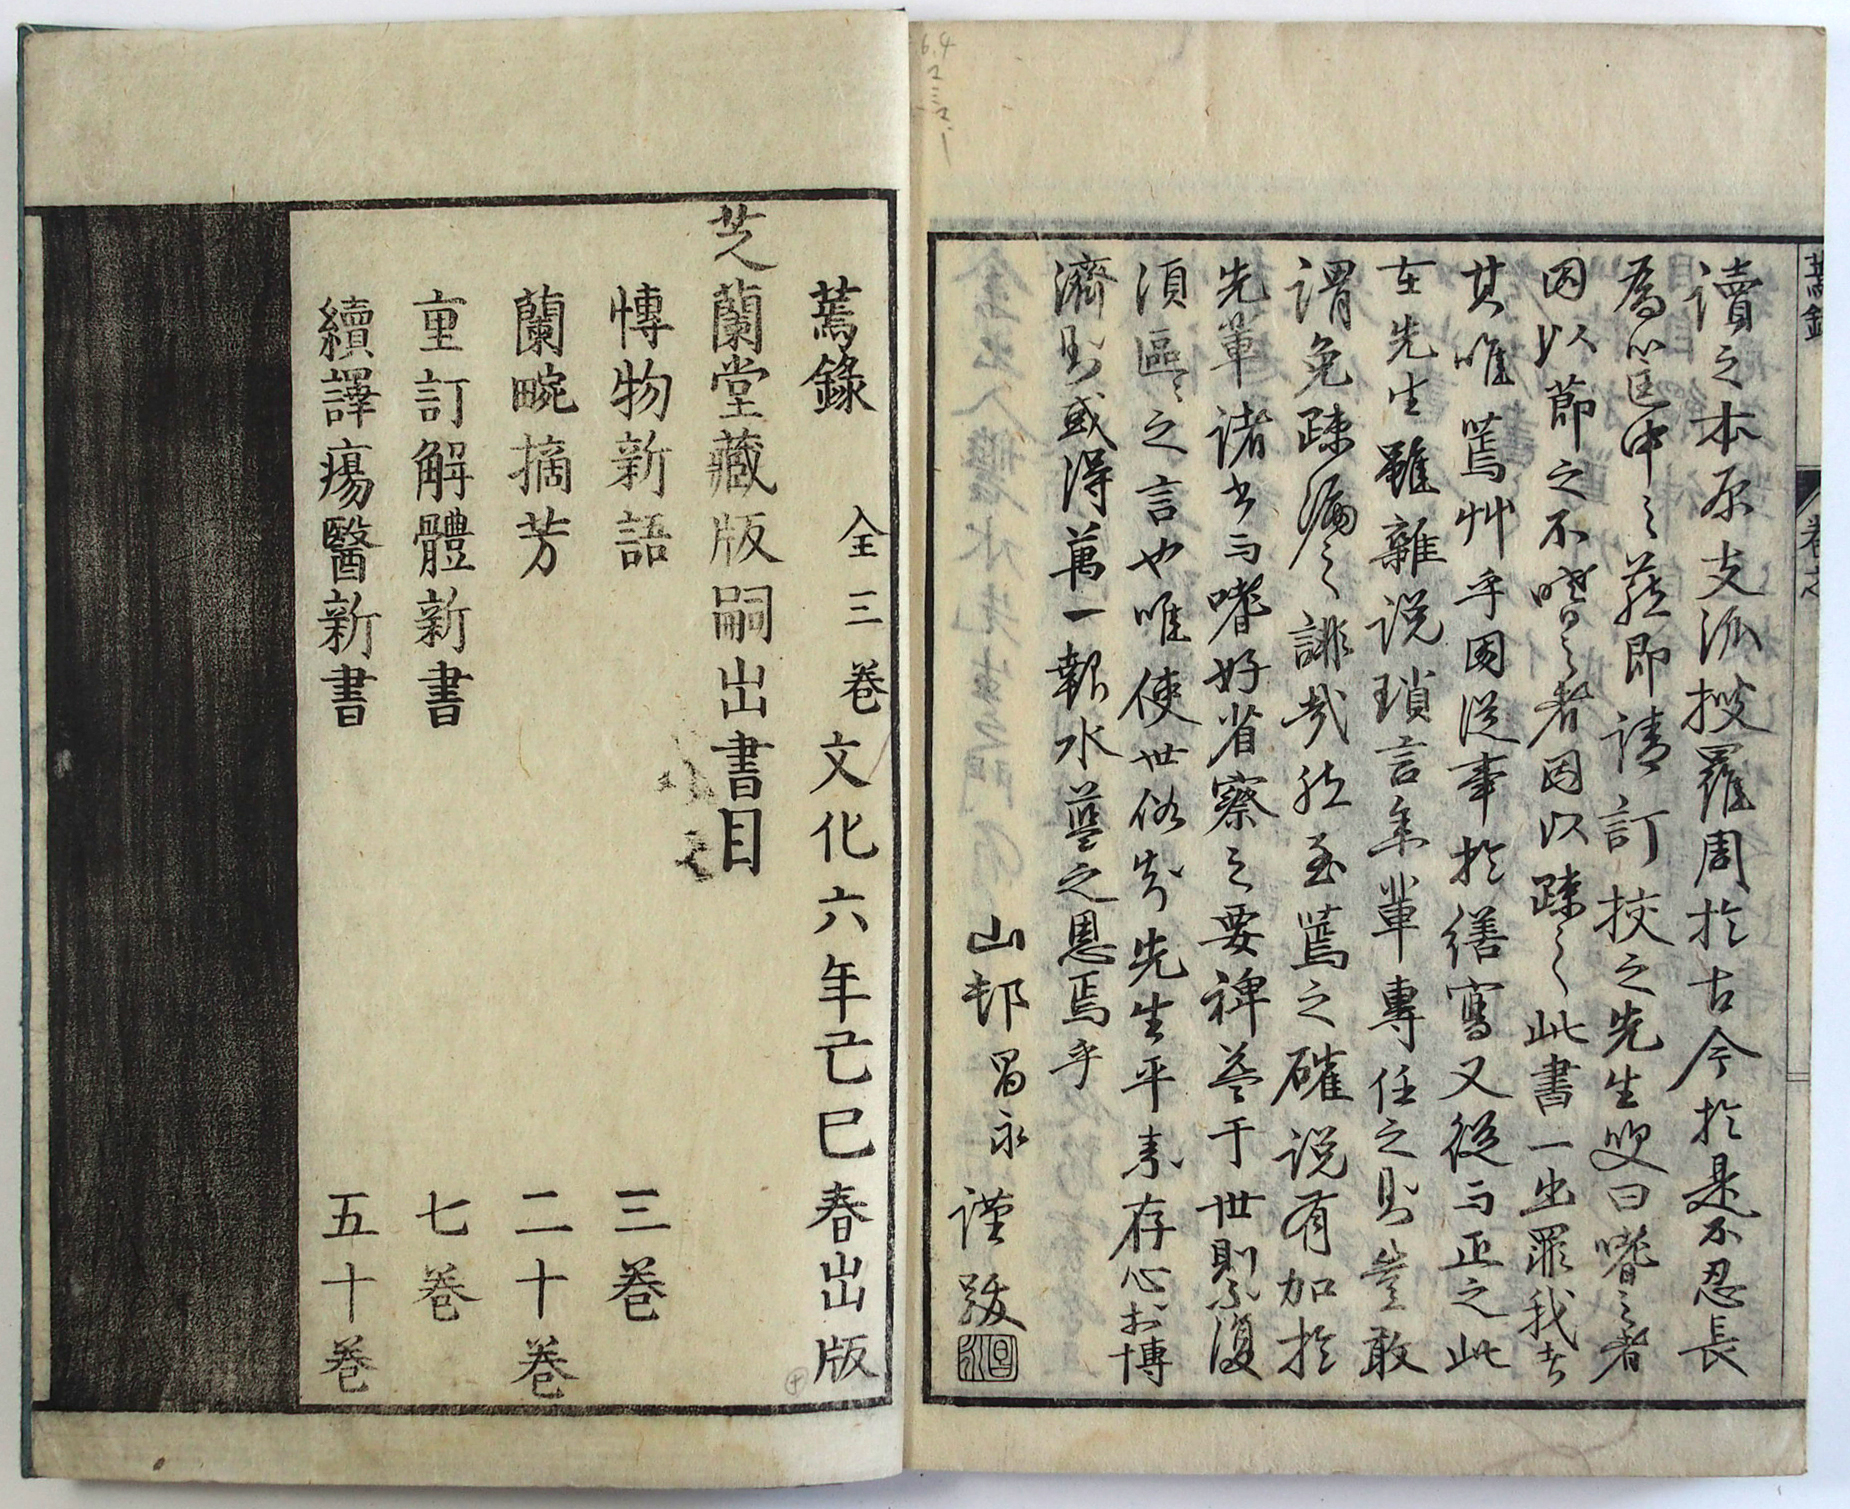 讀之本原支流搜羅周於古今於是不忍長
為筐中之蔬即請訂挍之先生叟曰嗜之者
因以節之不嗜之者因以踈之此書一出罪我者
其唯蔫艸乎国従事於繕寫又従与正之此
在先生雖雜説瑣言年輩專任之則豈敢
謂免踈漏之誹哉然至蔫之確説有加於
先輩諸書与嗜好省察之要裨益于世則不復
須區〻之言也唯使世俗知先生平素存心於博
濟則或得萬一報水藍之恩焉乎
山邨昌永謹跋
蔫錄
全三巻
文化六年己巳春出版
芝蘭堂藏版嗣出書目
博物新語 三巻
蘭畹摘芳 二十巻
重訂解體新書 七巻
續譯瘍醫新書 五十巻